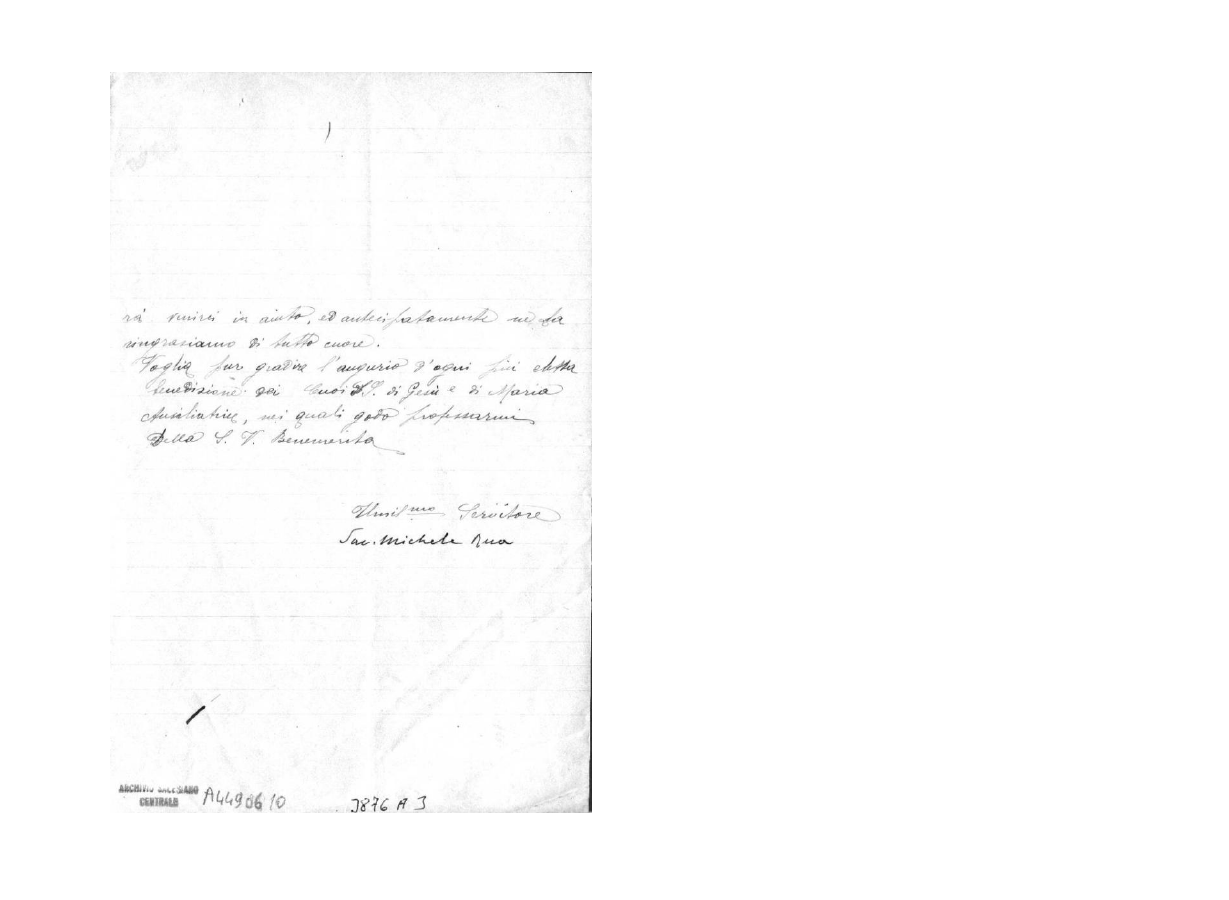 rà venirci in aiuto, ed anticipatamente ne La
ringraziamo di tutto cuore.
Voglia pur gradire l'augurio d'ogni più eletta
benedizione dei Cuori SS. di Gesù e di Maria
Ausiliatrice, nei quali godo professarmi
Della S. V. Benemerita
Umil.mo Servitore
Sac. Michele Rua
ARCHIVIO SALESIANO
CENTRALE
A4490610
3876 A 3